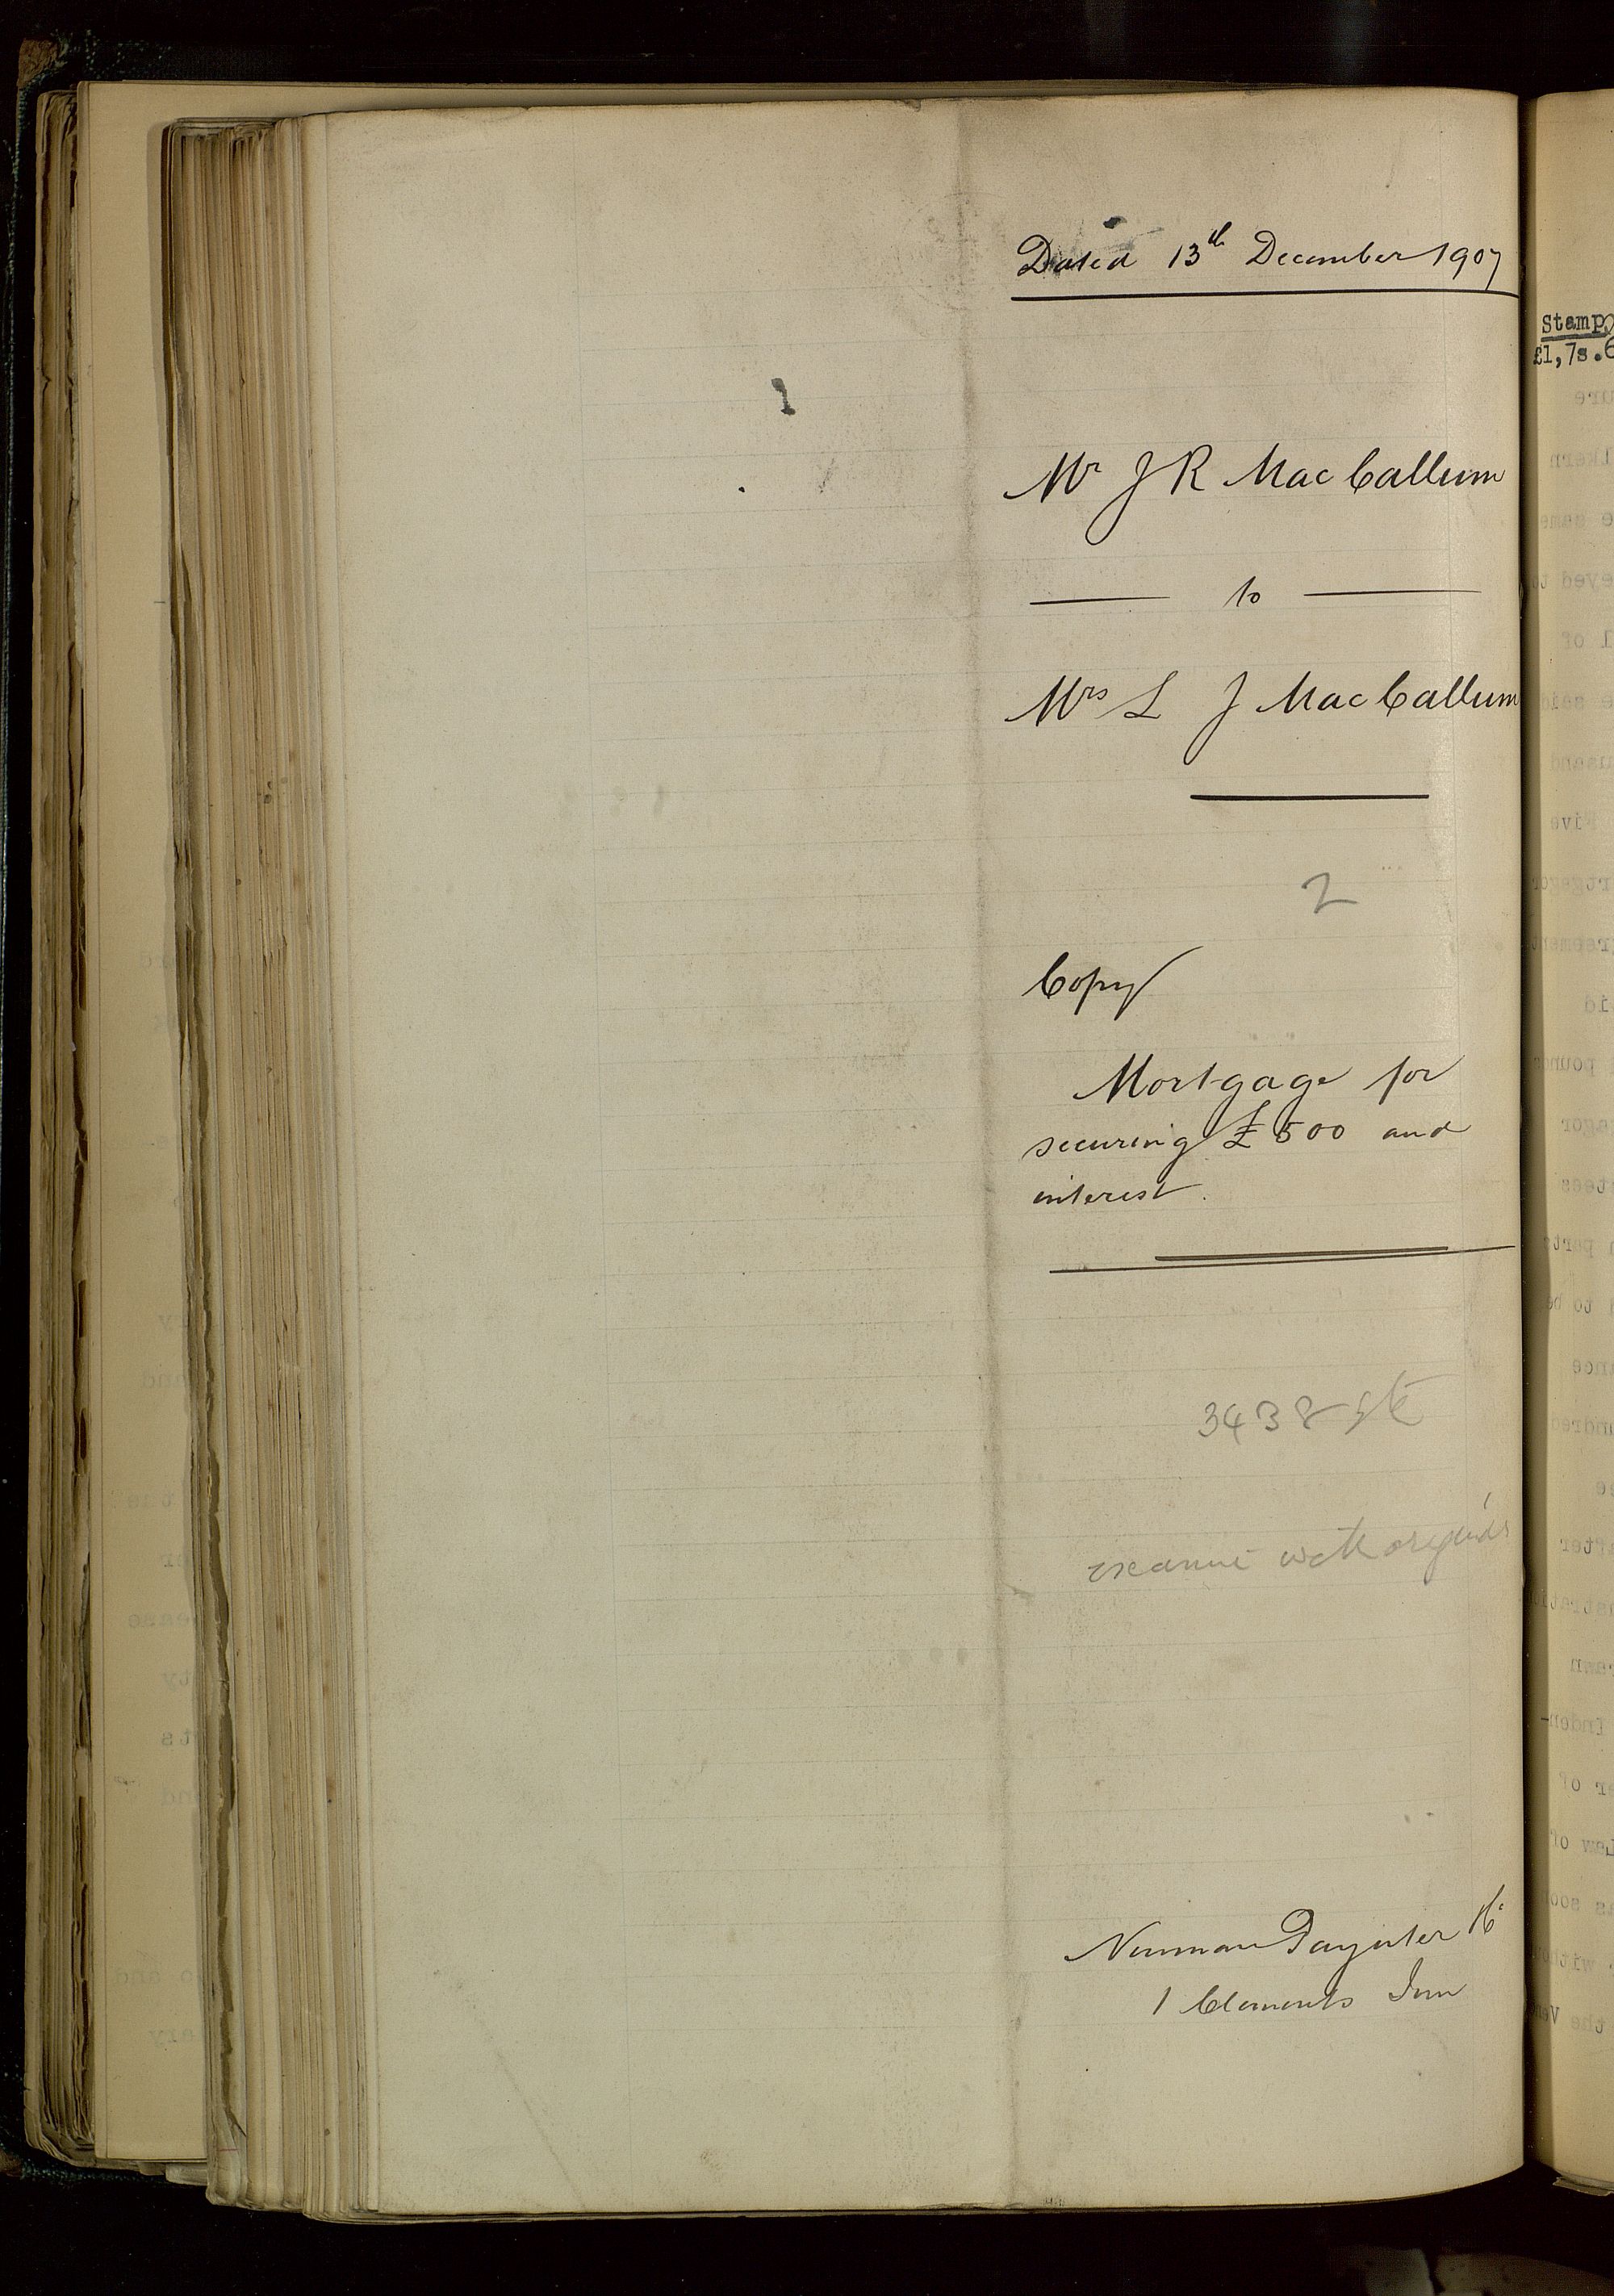 Dated 13th December 1907
Mr J R MacCallum
to
Mrs L J MacCallum
2
Copy
Mortgage for
securing £500 and
interest.
3438
with
Newman Paynter & Co
1 Clements Inn
Stamp
£1,7s.6